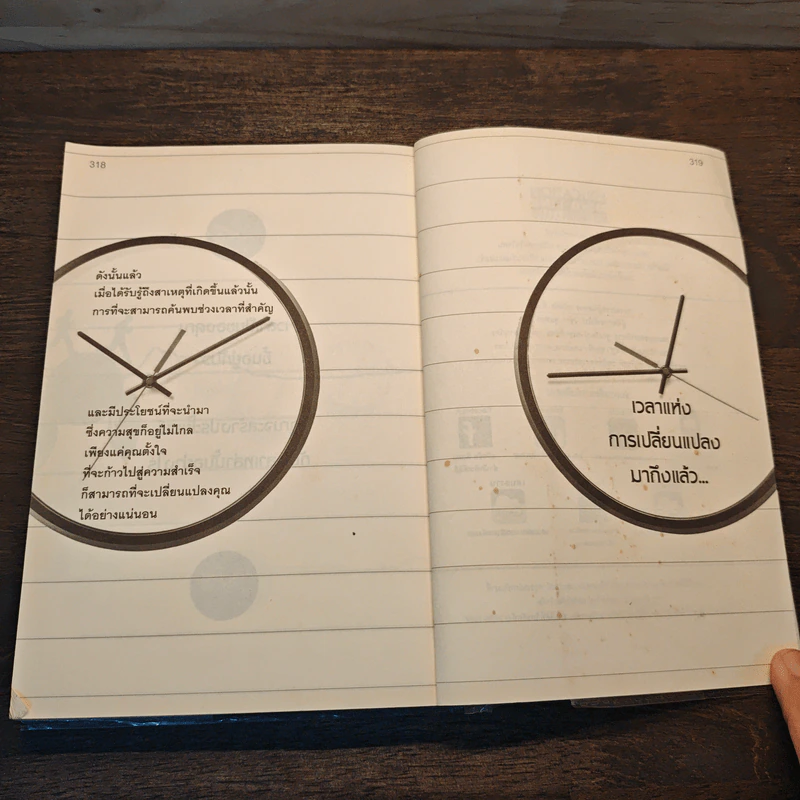 318
ดังนั้นแล้ว
เมื่อได้รับรู้ถึงสาเหตุที่เกิดขึ้นแล้วนั้น
การที่จะสามารถค้นพบช่วงเวลาที่สำคัญ
และมีประโยชน์ที่จะนำมา
ซึ่งความสุขก็อยู่ไม่ไกล
เพียงแค่คุณตั้งใจ
ที่จะก้าวไปสู่ความสำเร็จ
ก็สามารถที่จะเปลี่ยนแปลงคุณ
ได้อย่างแน่นอน
319
เวลาแห่ง
การเปลี่ยนแปลง
มาถึงแล้ว...